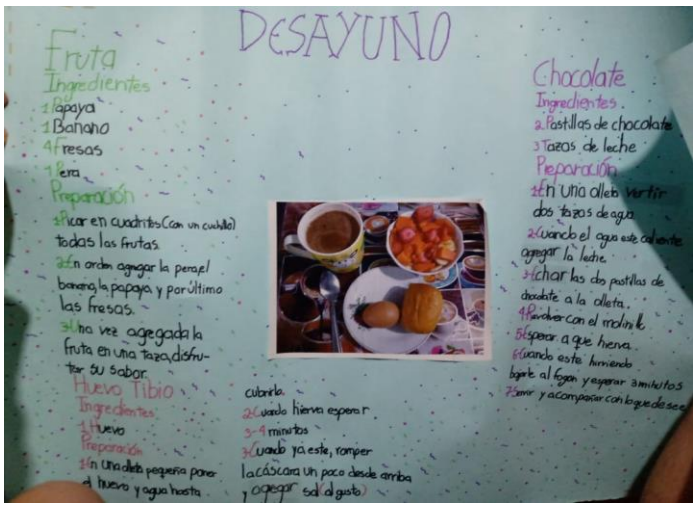 DESAYUNO
Fruta
Ingredientes
1 Papaya
1 Banano
4 Fresas
1 Pera
Preparación
1-Picar en cuadritos (con un cuchillo)
todas las frutas.
2-En orden agregar la pera, el
banano, la papaya y por último
las fresas.
3-Una vez agregada la
fruta en una taza, disfru-
tar su sabor.
Huevo Tibio
Ingredientes
1 Huevo
Preparación
1-En una olleta pequeña poner
el huevo y agua hasta
cubrirlo.
2-Cuando hierva esperar
3-4 minutos
3-Cuando ya este, romper
la cáscara un poco desde arriba
y agregar sal (al gusto)
Chocolate
Ingredientes.
2 Pastillas de chocolate
3 Tazas de leche
Preparación
1-En una olleta vertir
dos tazas de agua
2-Cuando el agua este caliente
agregar la leche.
3-Echar las dos pastillas de
chocolate a la olleta.
4-Revolver con el molinillo
5-Esperar a que hierva
6-Cuando este hirviendo
bajarle al fogon y esperar 3 minutos
7-Servir y acompañar con lo que desee